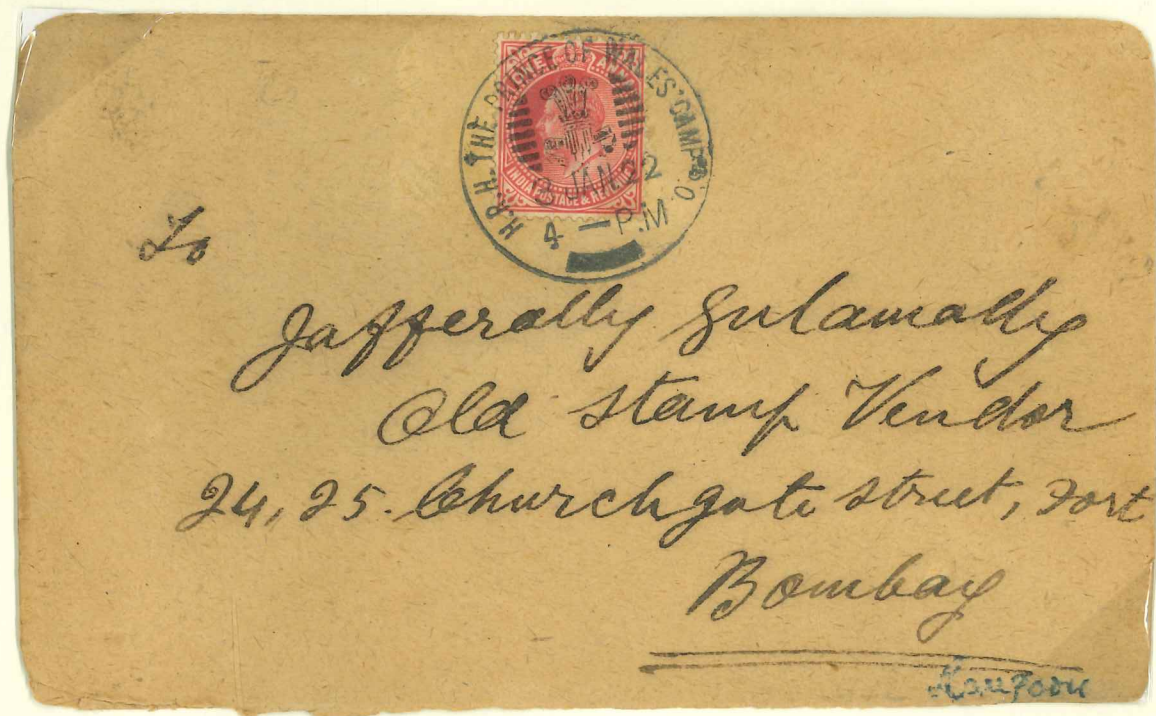 H.R.H. THE PRINCE OF WALES' CAMP P.O.
JAN. 22
4 — P.M
ONE ANNA
INDIA POSTAGE & REVENUE
To
Jafferally Gulamally
Old Stamp Vendor
24, 25. Churchgate street, Fort
Bombay
Rangoon